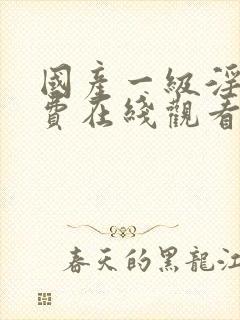 國產一級淫
費在綫觀看
春天的黑龍江